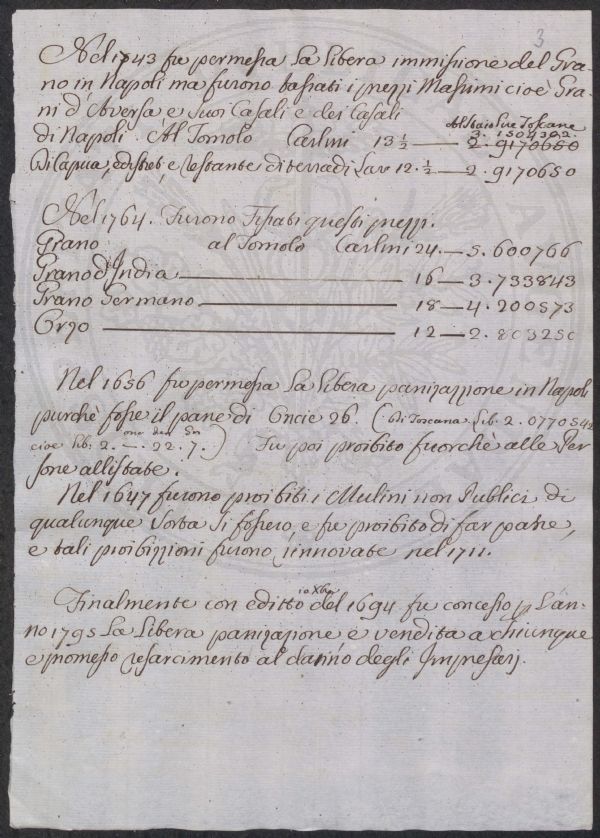 3
Nel 1743 fu permessa la libera immissione del Gra-
no in Napoli ma furono tassati i prezzi Massimi cioè Gra-
ni d'Aversa e suoi Casali e dei Casali
Al Staio Lire Toscane
3. 1504302
di Napoli. Al Tomolo Carlini 13 1/2 — 2. 9170650
Di Capua, e restante di terra di Lav. 12. 1/2 — 2. 9170650
Nel 1764. Furono Fissati questi prezzi.
Grano al Tomolo Carlini 24. — 5. 600766
Grano d'India — 16 — 3. 733843
Grano Germano — 18 — 4. 200573
Orzo — 12 — 2. 803250
Nel 1656 fu permessa la libera panizazzione in Napoli
purchè fosse il pane di Oncie 26. (di Toscana Lib. 2. 0770542
cioè lib. 2. — . 22. 7.) Fu poi proibito fuorchè alle Per
sone allistate.
Nel 1647 furono proibiti i Mulini non Publici di
qualunque sorta si fossero, e fu proibito di far pane,
e tali proibizzioni furono rinnovate nel 1711.
Finalmente con editto 10 Xbre del 1694 fu concesso p l'an-
no 1795 la libera panizazione e vendita a chiunque
e promesso resarcimento al danno degli Impresarj.